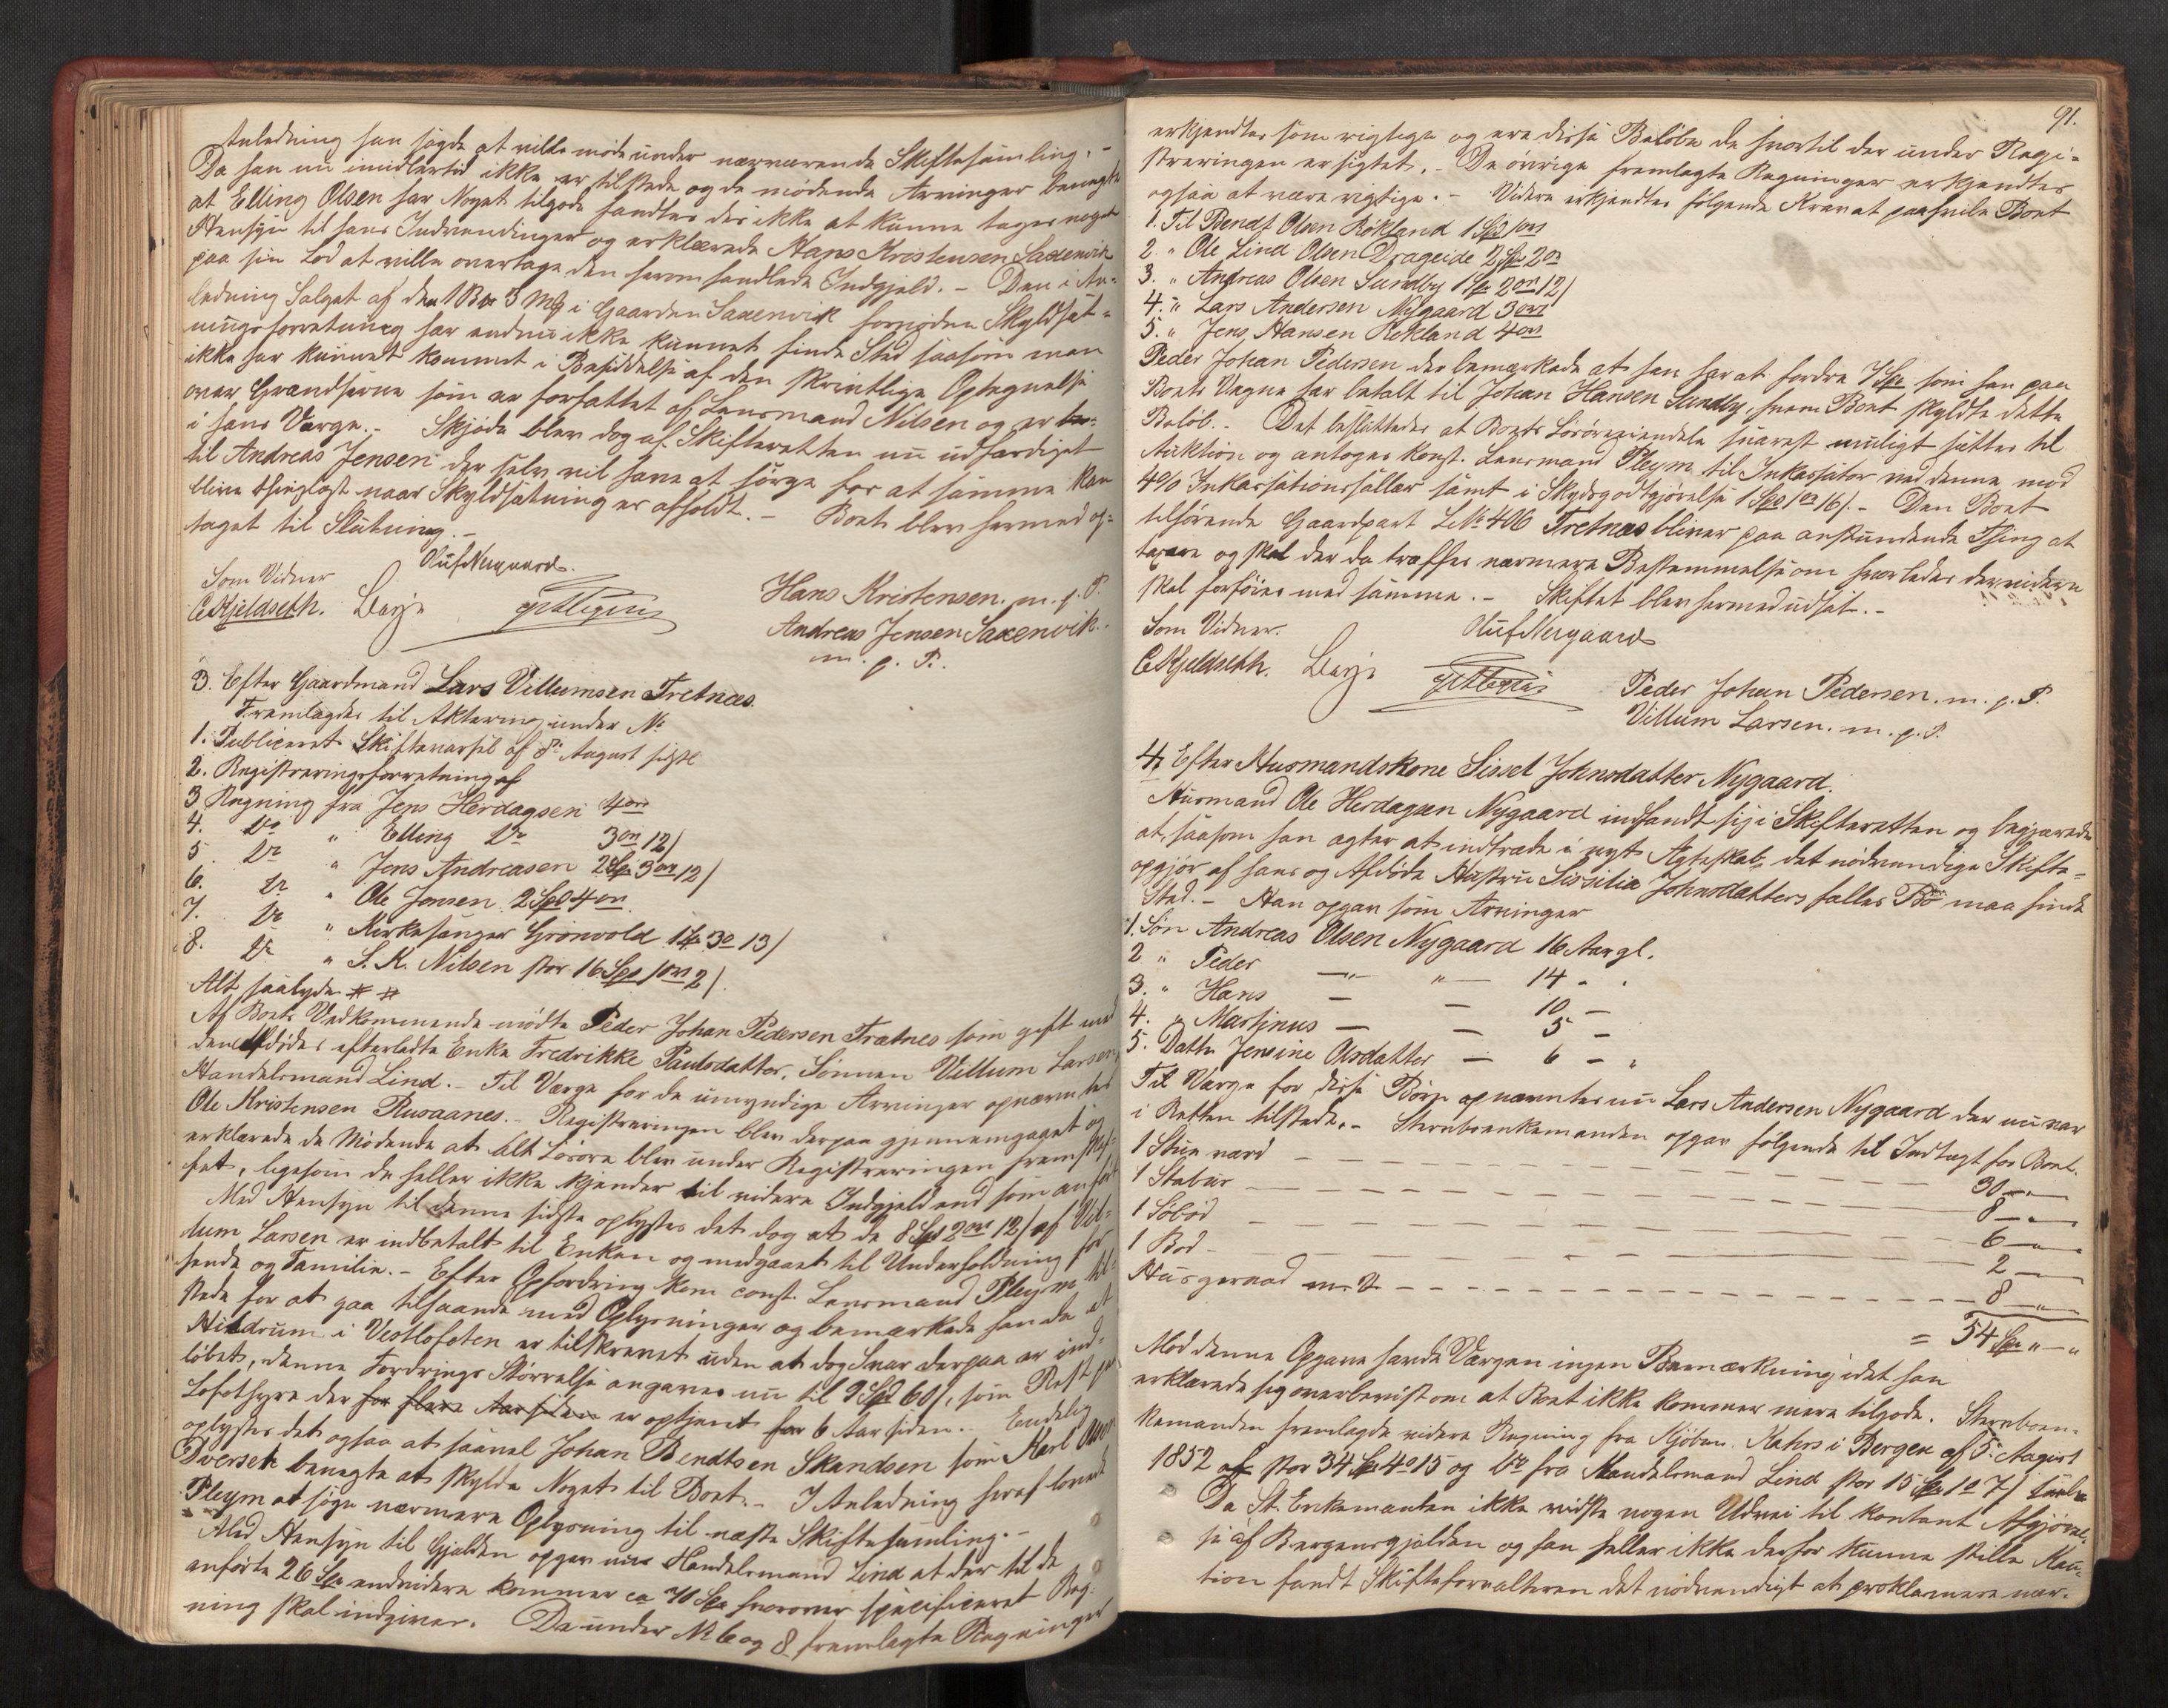 Anledning han sagde at ville møde under nærværende Skiftesamling. –
Da han nu imidlertid ikke er tilstede og de mødende Arvinger benegte
at Elling Olsen har Noget tilgode fandtes der ikke at kunne tages noget
Hensyn til hans Indvendinger og erklærede Hans Kristensen Saxenvik
paa sin Lod at ville overtage den heromhandlede Indgjeld. – Den i An-
ledning Salget af den 1 Bpd 3 Mk i Gaarden Saxenvik fornødne Skyldsæt-
ningsforretning har endnu ikke kunnet finde Sted saasom man
ikke har kunnet kommet i Besiddelse af den skriftlige Optegnelse
over Grændserne som er forfattet af Lensmand Nilsen og er
i hans Værge. – Skjøde blev dog af Skifteretten nu udfærdiget
til Andreas Jensen der selv vil have at sørge for at samme kan
blive thinglæst naar Skyldsætning er afholdt. – Boet blev hermed op-
taget til Slutning. –
Oluf Nergaard
Som Vidner
C Kjeldseth. Hans Kristensen. m. p. P.
Andreas Jensen Saxenvik.
m. p. P.
3. Efter Gaardmand Lars Villumsen Tretnes.
Fremlagdes til Aktering under No
1. Publiceret Skiftevarsel af 8de August sidstl
2. Registreringsforretning af
3 Regning fra Jens Herdagsen 4 ort
4. Do " Elling Do 3 ort 12/
5. Do " Jens Andreasen 2 Spd 3 ort 12/
6. Do " Ole Jensen 2 Spd 4 ort
7. Do " Kirkesanger Grönvold 1 Spd 3 o 13/
8. Do " S. K. Nilsen stor 16 Spd 1 ort 2/.
Alt saalyde # #
Af Boets Vedkommende mødte Peder Johan Pedersen Trætnes som gift med
den Afdødes efterladte Enke Fredrikke Paulsdatter, Sønnen Villum Larsen,
Handelsmand Lind. – Til Værge for de umyndige Arvinger opnævntes
Ole Kristensen Rusaanes. – Registreringen blev derpaa gjennemgaaet og
erklærede de Mødende at Alt Løsøre blev under Registreringen fremskaf-
fet, ligesom de heller ikke kjender til videre Indgjeld end som anført
Med Hensyn til denne sidste oplystes det dog at de 8 Spd 2 ort 12/ af Vil-
lum Larsen er indbetalt til Enken og medgaaet til Underholdning for
hende og Familie. – Efter Opfordring kom const. Lensmand Pleym til-
stede for at gaa tilhaande med Oplysninger og bemærkede han da at
Hildrum i Vestlofoten er tilskrevet uden at dog Svar derpaa er ind-
løbet, denne Fordrings Størrelse angaves nu til 9 Spd 60/, som Rest paa
Lofothyre der for flere Aar siden er optjent for 6 Aar siden. – Endelig
oplystes det ogsaa at saavel Johan Bendtsen Skandsen som Karl
Dverset benegte at skylde Noget til Boet. – I Anledning heraf lovede
Pleym at søge nærmere Oplysning til næste Skiftesamling. –
Med Hensyn til Gjælden opgav nu Handelsmand Lind at der til de
anførte 26 Spd endvidere kommer ca 70 Spd hvorover specificeret Reg-
ning skal indgives. De under No 6 og 8 fremlagte Regninger
91.
erkjendtes som rigtige og ere disse Beløb de hvortil der under Regi-
streringen er sigtet. – De øvrige fremlagte Regninger erkjendtes
ogsaa at være rigtige. – Videre erkjendtes følgende Krav at paahvile Boet
1. Til Bendt Olsen Rökland 1 Spd 1 ort
2. " Ole Lind Olsen Drageide 2 Spd 2 ort
3. " Andreas Olsen Sundby 1 Spd 2 ort 12/
4. " Lars Andersen Nygaard 3 ort
5. " Jens Hansen Rekland 4 ort
Peder Johan Pedersen der bemærkede at han har at fordre 7 Spd som han paa
Boets Vegne har betalt til Johan Hansen Sundby, hvem Boet skyldte dette
Beløb. – Det besluttedes at Boets Løsøreeiendele snarest muligt sættes til
Auktion og antoges const. Lensmand Pleym til Inkassator ved denne mod
4% Inkassationssallær samt i Skydsgodtgjørelse 1 Spd 1 ort 16/. – Den Boet
tilhørende Gaardpart L.No 406 Tretnes bliver paa anstundende Thing at
taxere og skal der da træffes nærmere Bestemmelse om hvorledes dervidere
skal forføies med samme. – Skiftet blev hermed udsat. –
Som Vidner. Oluf Nergaard
C Kjeldseth. Peder Johan Pedersen. m. p. P.
Villum Larsen. m. p. P.
4 Efter Husmandskone Sissel Johnsdatter Nygaard.
Husmand Ole Herdagsen Nygaard indfandt sig i Skifteretten og begjærede
at, saasom han agter at indtræde i nyt Ægteskab, det nødvendige Skifte-
opgjør af hans og Afdøde Hustru Sissilia Johnsdatters fælles Bo maa finde
Sted. – Han opgav som Arvinger
1. Søn Andreas Olsen Nygaard 16 Aar gl.
2 " Peder — " — " — 14 - .
3. " Hans — — 10 —
4. " Martinus — — 5 —
5. Datter Jensine Olsdatter — 6 — "
Til Værge for disse Børn opnævntes nu Lars Andersen Nygaard der nu var
i Retten tilstede. – Stervboenkemanden opgav følgende til Indtægt for Boet.
1 Stue værd — — — — — 30 — " —
1 Stabur — — — — — 8 — " —
1 Søbod — — — — — 6 — " —
1 Bod — — — — — 2 — " —
Husgeraad m. v. — — — — — 8 — " —
= 54 Spd " — "
Mod denne Opgave havde Værgen ingen Bemærkning idet han
erklærede sig overbevist om at Boet ikke kommer mere tilgode. Stervboen-
kemanden fremlagde videre Regning fra Kjøbm. Kahrs i Bergen af 5. August
1852 af stor 34 Spd 4 o 15 og do fra Handelsmand Lind stor 15 Spd 1 o 7/
Da St. Enkemanden ikke vidste nogen Udvei til kontant Afgjørel-
se af Bergensgjælden og han heller ikke derfor kunne stille Kau-
tion fandt Skifteforvalteren det nødvendigt at proklamere nær-